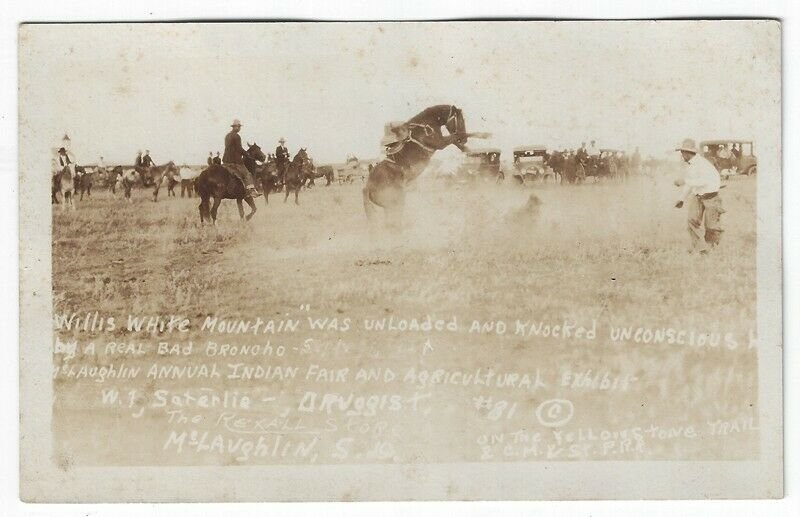 "Willis White Mountain" was unloaded and knocked unconscious
by a real bad broncho -
McLaughlin Annual Indian Fair and Agricultural Exhibit
W.J. Saterlie -, Druggist, #81 ©
The Rexall Store
McLaughlin, S.D. on the Yellowstone Trail
& C.M. & St. P.R.R.